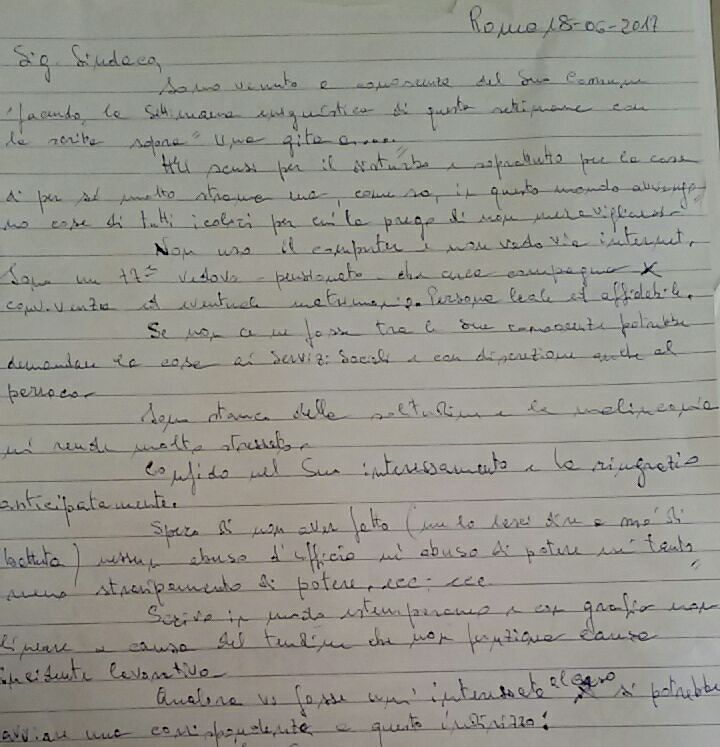 Roma 18-06-2017
Sig. Sindaco,
Sono venuto a conoscenza del Suo Comune
"facendo, la Settimana enigmistica di questa settimana con
la scritta sopra" Una gita a.....
"Mi scusi per il disturbo e sopratutto per la cosa
di per sé molto strana ma, come sa, in questo mondo avvengo-
no cose di tutti i colori per cui la prego di non meravigliarsi.
Non uso il computer e non vado via internet.
Sono un 77ne vedovo - pensionato - che cerca compagna X
convivenza ed eventuale matrimonio. Persona leale ed affidabile.
Se non ce ne fosse tra le Sue conoscenze potrebbe
demandare la cosa ai Servizi Sociali e con discrezione anche al
parroco.
Sono stanco della solitudine e la malinconia
mi rende molto stressato.
Confido nel Suo interessamento e la ringrazio
anticipatamente.
Spero di non aver fatto (me lo lasci dire a mo' di
battuta) nessun abuso d'ufficio né abuso di potere né tanto
meno straripamento di potere, ecc. ecc.
Scrivo in modo estemporaneo e con grafia non
lineare a causa del tendine che non funziona causa
incidente lavorativo.
Qualora vi fosse interessata al caso si potrebbe
avviare una corrispondenza a questo indirizzo: